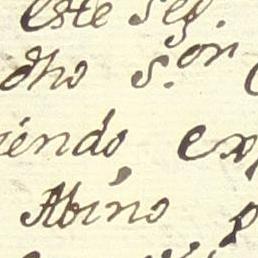 este
dho S.on
iendo ex
Abino p